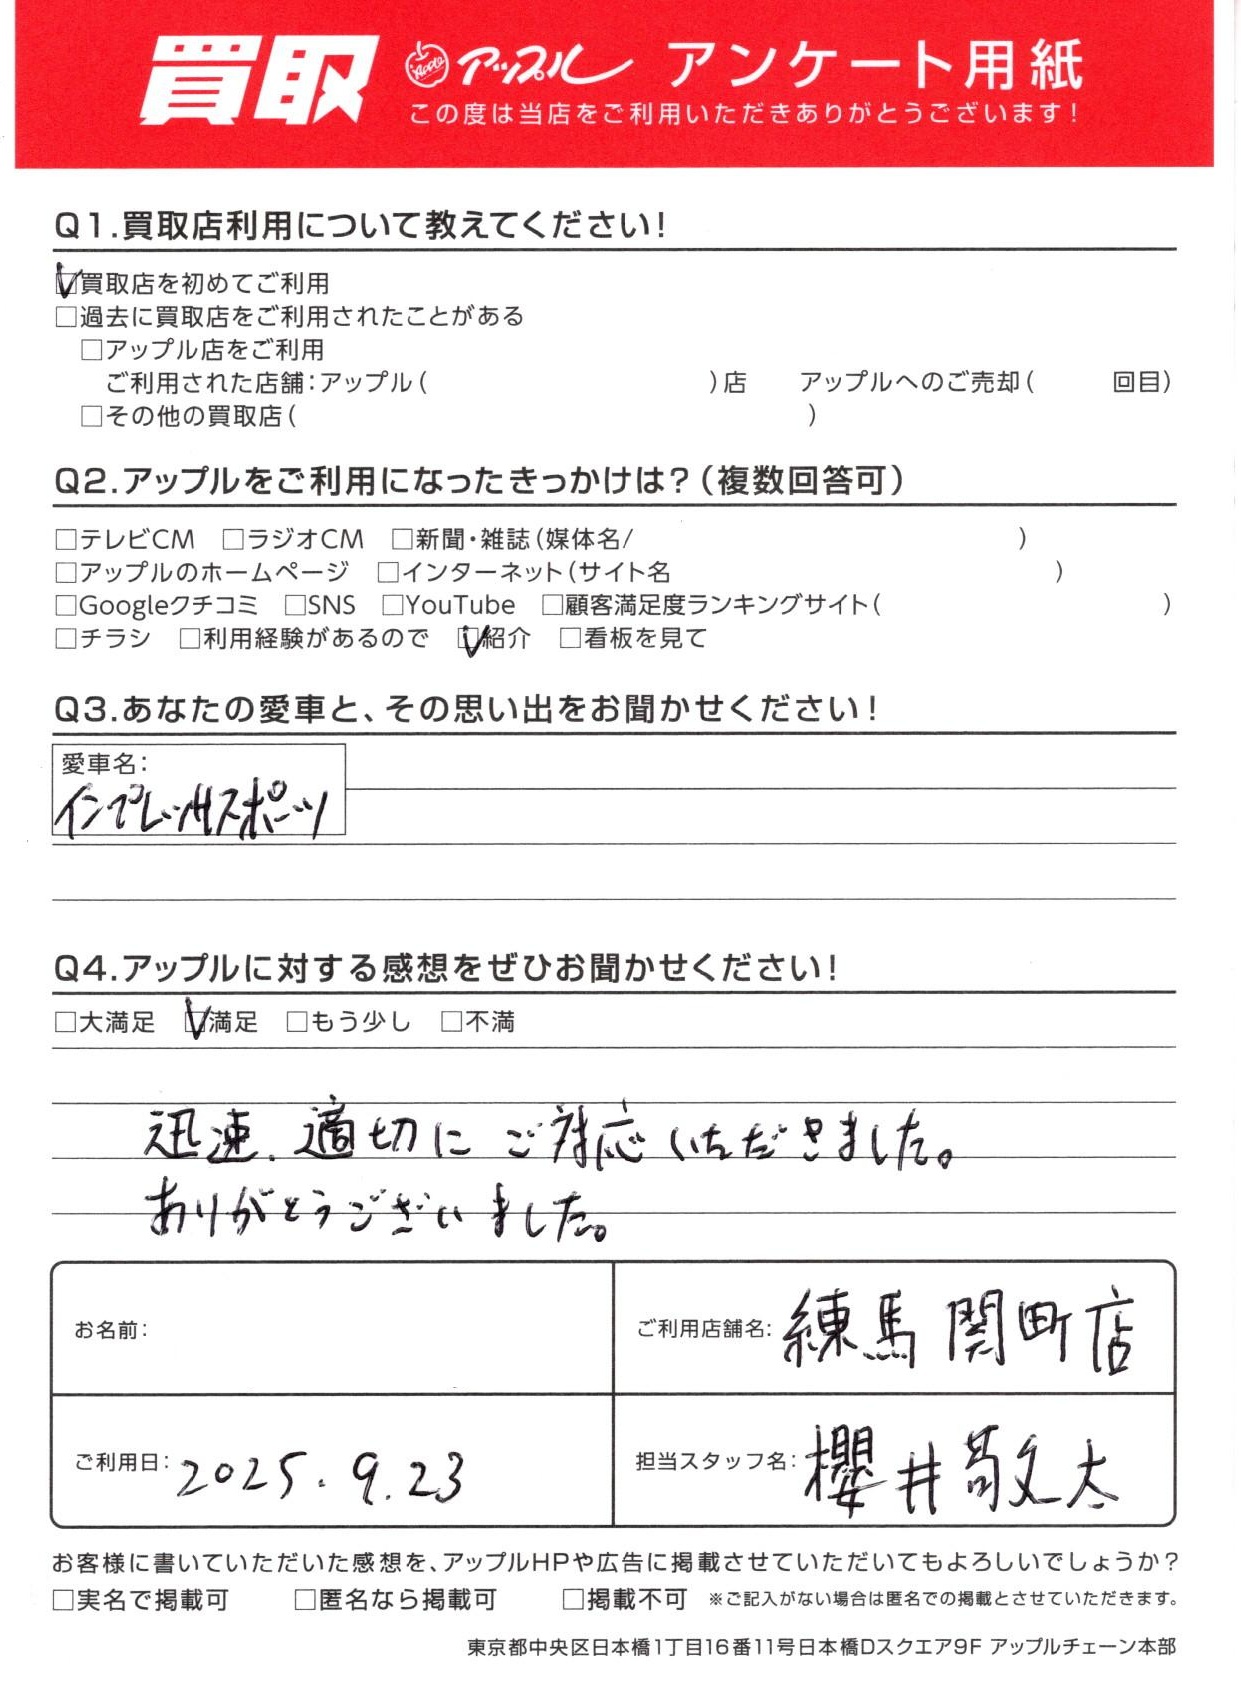 買取 アップル アンケート用紙
この度は当店をご利用いただきありがとうございます!
Q1.買取店利用について教えてください!
☑買取店を初めてご利用
□過去に買取店をご利用されたことがある
□アップル店をご利用
ご利用された店舗:アップル( )店 アップルへのご売却( 回目)
□その他の買取店( )
Q2.アップルをご利用になったきっかけは?(複数回答可)
□テレビCM □ラジオCM □新聞・雑誌(媒体名/ )
□アップルのホームページ □インターネット(サイト名 )
□Googleクチコミ □SNS □YouTube □顧客満足度ランキングサイト( )
□チラシ □利用経験があるので ☑紹介 □看板を見て
Q3.あなたの愛車と、その思い出をお聞かせください!
愛車名:
インプレッサスポーツ
Q4.アップルに対する感想をぜひお聞かせください!
□大満足 ☑満足 □もう少し □不満
迅速、適切にご対応いただきました。
ありがとうございました。
お名前:
ご利用店舗名: 練馬関町店
ご利用日: 2025.9.23
担当スタッフ名: 櫻井敬文太
お客様に書いていただいた感想を、アップルHPや広告に掲載させていただいてもよろしいでしょうか?
□実名で掲載可 □匿名なら掲載可 □掲載不可 ※ご記入がない場合は匿名での掲載とさせていただきます。
東京都中央区日本橋1丁目16番11号日本橋Dスクエア9F アップルチェーン本部